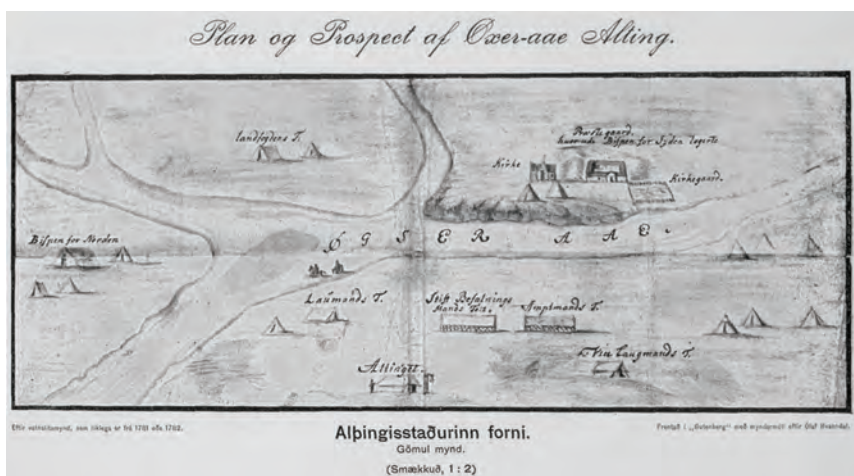 Plan og Prospect af Oxer-aae Alting.
landfogdens T.
Præstegaard.
hvorinde Bispen for Syden logerte
Kirke
Kirkegaard.
Bispen for Norden
ÖGSER AAE.
Laumands T.
Stift Befalnings
Mands Telt.
Amptmands T.
Vice Laugmands T.
Altinget.
Eftir vatnslitamynd, sem líklega er frá 1781 eða 1782.
Alþingisstaðurinn forni.
Gömul mynd.
(Smækkuð, 1 : 2)
Prentað í „Gutenberg“ með myndamóti eftir Ólaf Hvanndal.